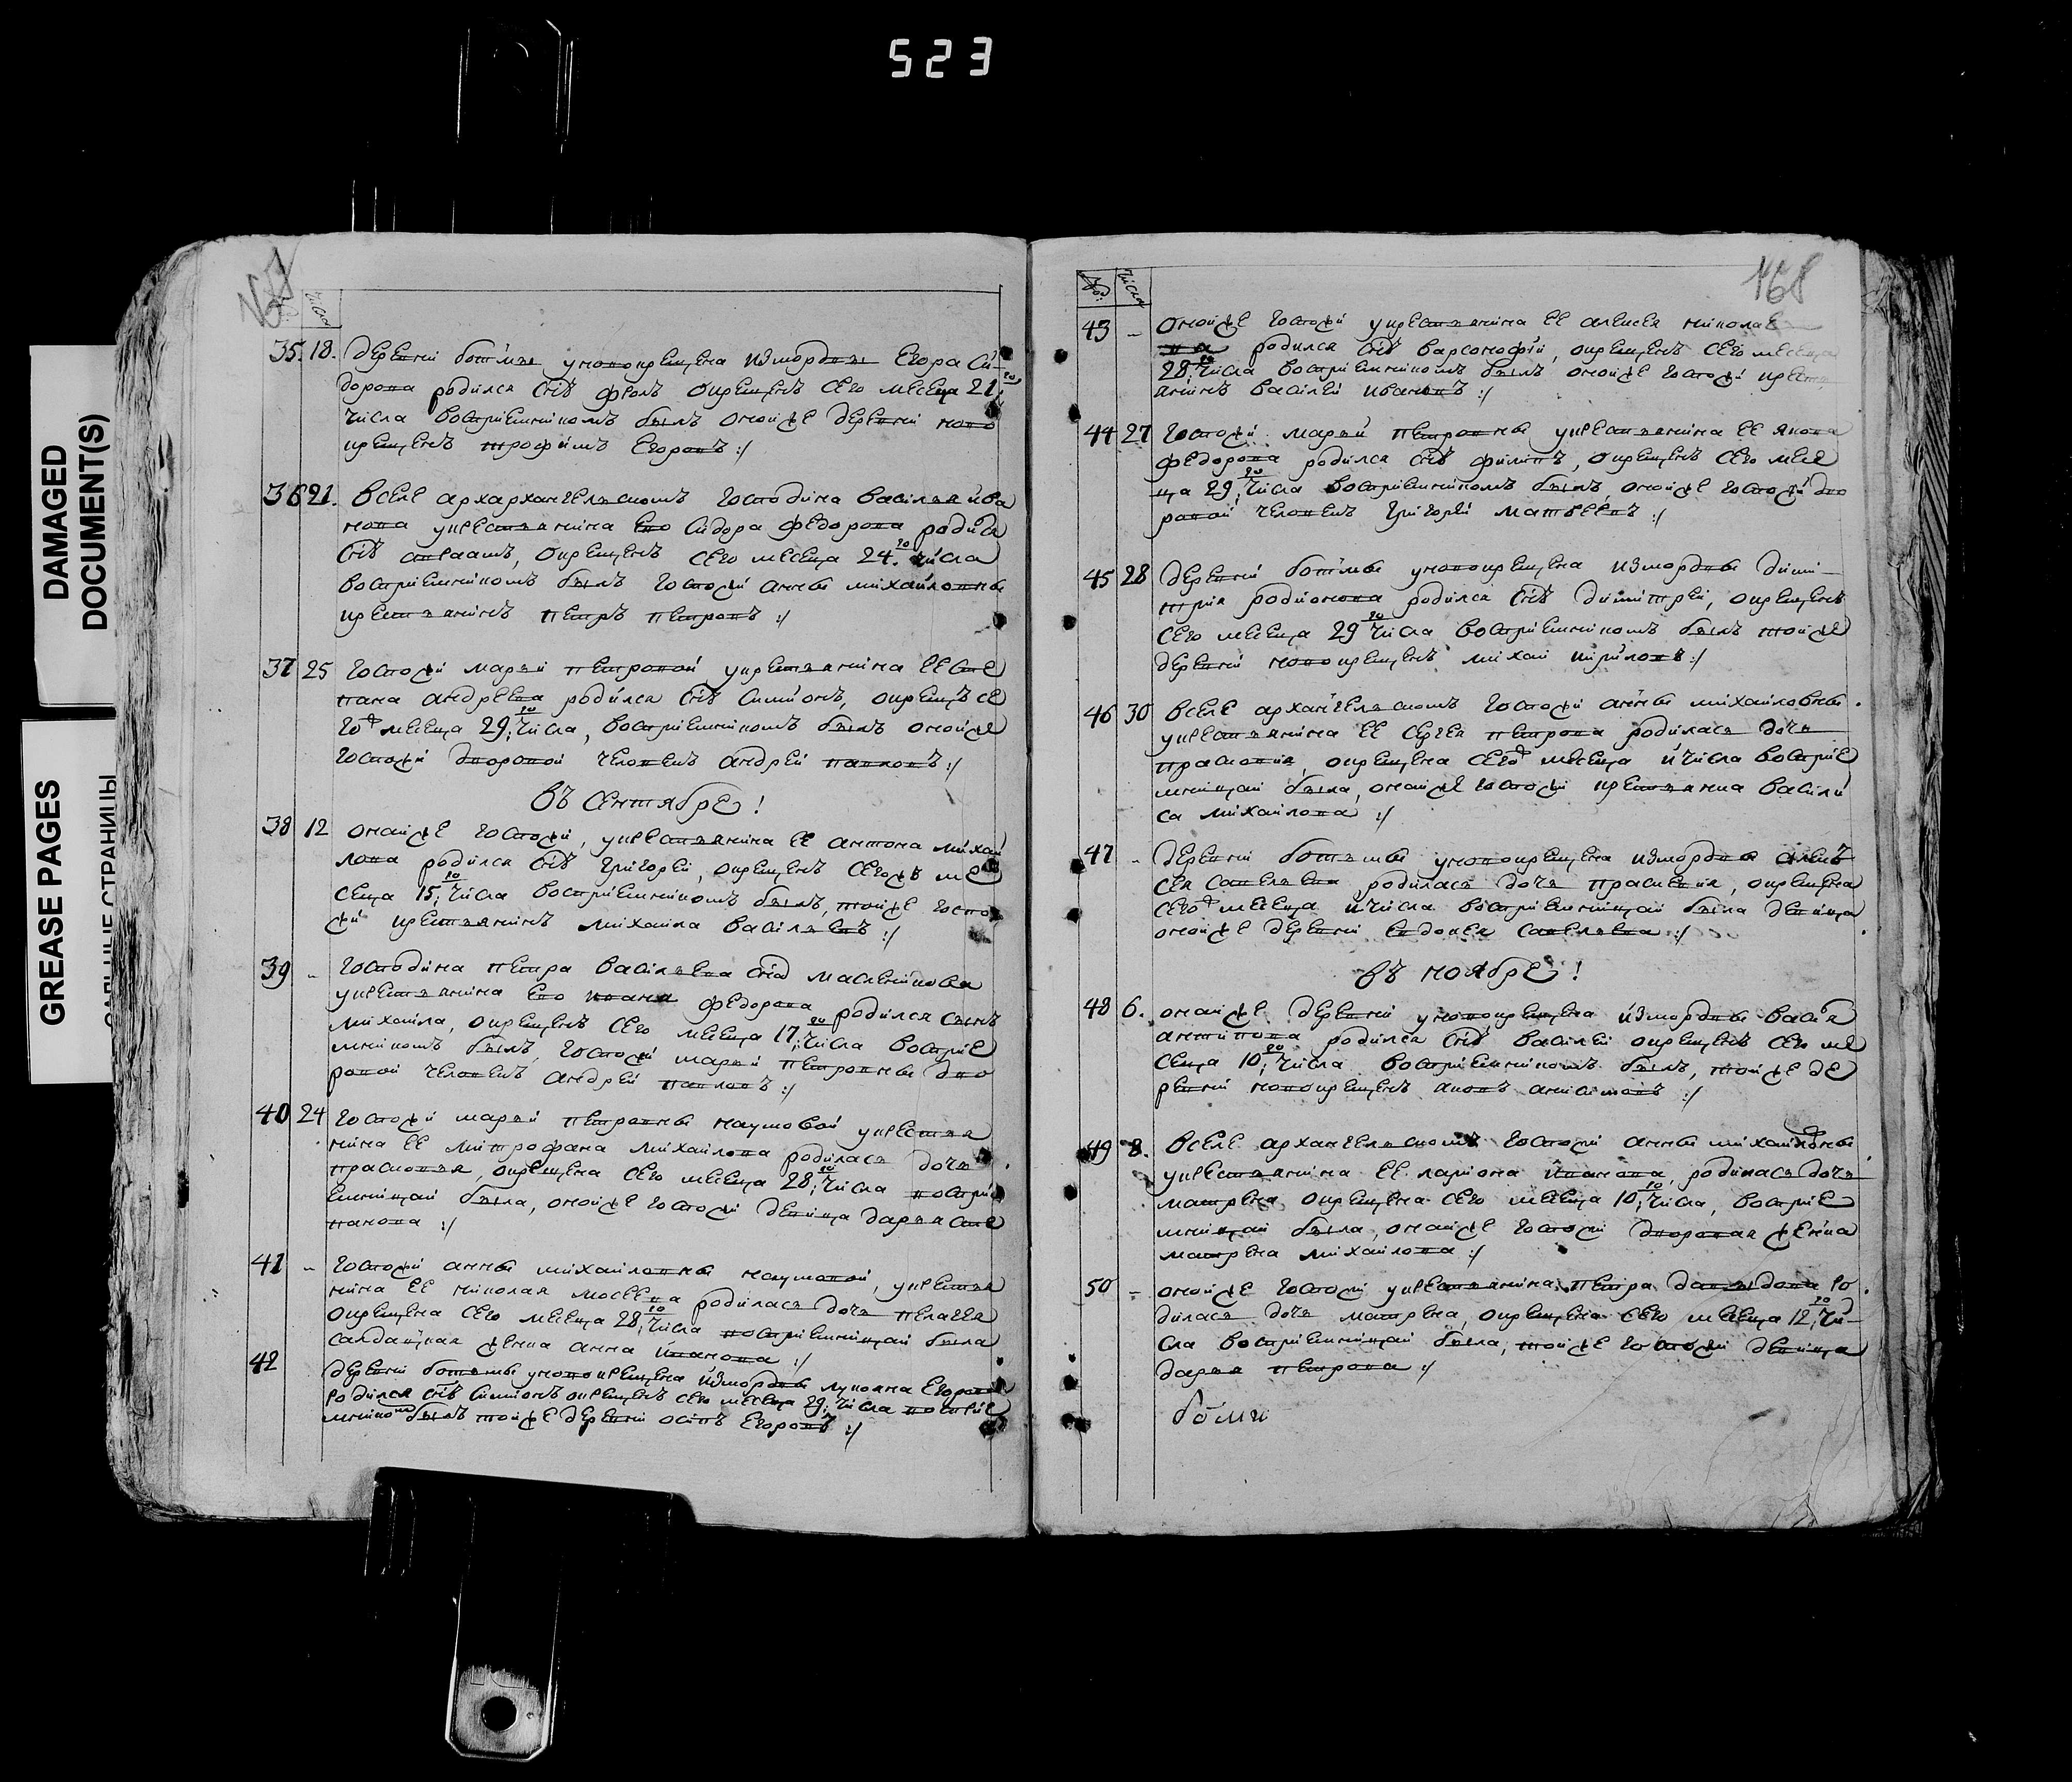 523
DAMAGED
DOCUMENT(S)
GREASE PAGES
САЛЬНЫЕ СТРАНИЦЫ
числа
35. 18. деревни ботмы уновокрещена измордвы Егора Си-
дорова родился снъ окрещенъ сего месеца 21: го
числа восприемникомъ былъ оной же деревни ново
крещенъ трофимъ Егоровъ :/
36 21. вселе архархангельскомъ господина василья ива
нова укрестьянина ево сидора федорова родился
снъ окрещенъ сего месеца 24. го числа
восприемникомъ былъ госпожи анны михайловны
крестьянинъ петръ петровъ :/
37 25 госпожи марьи петровой укрестьянина ее сте
пана андреева родился снъ симионъ, окрещенъ се
гож месеца 29: го числа, восприемникомъ былъ оной же
госпожи дворовой человекъ андрей павловъ :/
въ сентябре !
38 12 оной же госпожи, укрестьянина ее антона михаи
лова родился снъ григорей, окрещенъ сегожъ ме
сеца 15: го числа восприемникомъ былъ, той же госпо
жи крестьянинъ михаила васильевъ :/
39 - господина петра васильева снъ масленикова
укрестьянина ево ивана федорова родился сынъ
михаила, окрещенъ сего месеца 17: го числа восприе
мникомъ былъ, госпожи марьи петровны дво
ровой человекъ андрей павловъ :/
40 24 госпожи марьи петровны наумовой укрестья
нина ее митрофана михаилова родилась дочь
прасковья, окрещена сего месеца 28: го числа воспри
емницаи была, оной же госпожи девица дарья сте
панова :/
41 - госпожи анны михайловны наумовой, укрестья
нина ее николая мосеева родилась дочь пелагея
окрещена сего месеца 28: го числа восприемницаи была
салдацкая женка анна иванова :/
42 деревни ботьмы уновокрещена измордвы лукояна Егорова
родился снъ симионъ окрещенъ сего месеца 29: числа восприе
мникомъ былъ той же деревни осипъ Егоровъ :/
168
числа
43 - оной же госпожи укрестьянина ее алексея николае
ва родился снъ варсонофий, окрещенъ сего месеца
28: го числа восприемникомъ былъ оной же госпожи кресть
янинъ василей ивановъ :/
44 27 госпожи марьи петровны укрестьянина ее якова
федорова родился снъ филипъ, окрещенъ сего месе
ца 29: го числа восприемникомъ былъ, оной же госпожи дво
ровой человекъ григорей матвеевъ :/
45 28 деревни ботмы уновокрещена измордвы дими-
трия родионова родился снъ димитрей, окрещенъ
сего месеца 29 го числа восприемникомъ былъ той же
деревни новокрещенъ михаи кириловъ :/
46 30 вселе архангельскомъ госпожи анны михайловны
укрестьянина ее сергея петрова родилась дочь
прасковья, окрещена сегож месеца и числа восприе
мницаи была, оной же госпожи крестьянка васили
са михаилова :/
47 - деревни ботьмы уновокрещена измордвы алек
сея савельева родилась дочь прасковья, окрещена
сегож месеца и числа восприемницаи была девица
оной же деревни евдокея савельева :/
въ ноябре !
48 6. оной же деревни уновокрещена измордвы васил
антипова родился снъ василей окрещенъ сего ме
сеца 10: го числа восприемникомъ былъ, той же де
ревни новокрещенъ
49 8. вселе архангельскомъ госпожи анны михайловны
укрестьянина ее лариона иванова, родилась дочь
матрена окрещена сего месеца 10: го числа, восприе
мницаи была, оной же госпожи дворовая женка
матрена михаилова :/
50 - оной же госпожи укрестьянина петра давыдова ро
дилась дочь матрена, окрещена сего месеца 12: го чи-
сла восприемницаи была, той же госпожи девица
дарья петрова :/